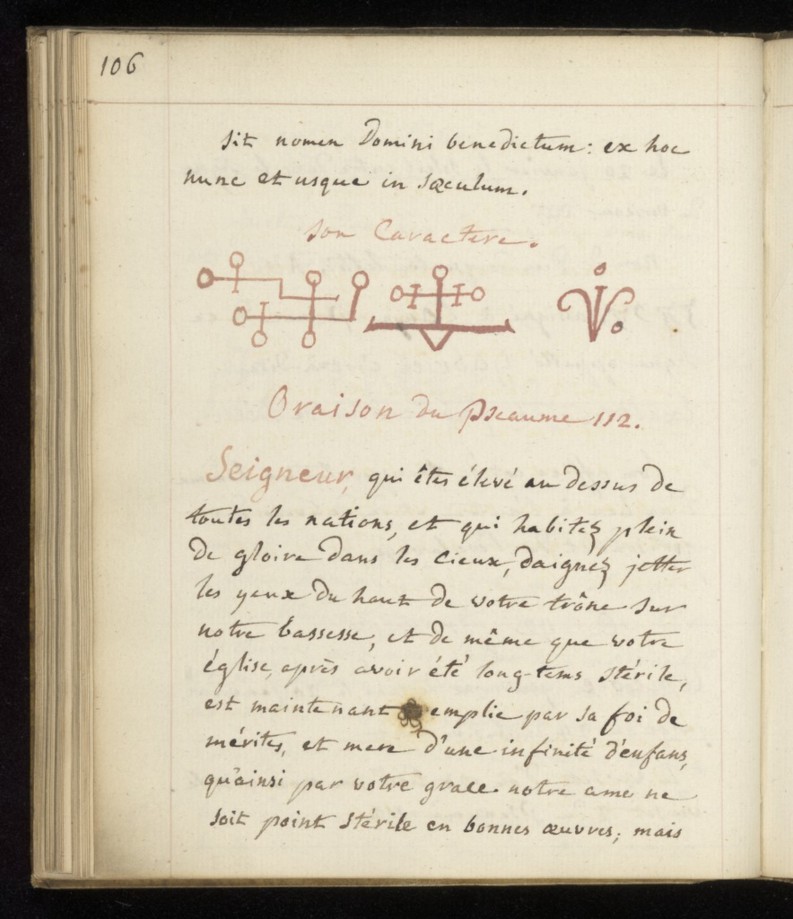 106
sit nomen Domini benedictum: ex hoc
nunc et usque in sæculum.
son Caractere.
Oraison du Pseaume 112.
Seigneur, qui êtes élevé au dessus de
toutes les nations, et qui habitez plein
de gloire dans les cieux, daignez jetter
les yeux du haut de votre trône sur
notre bassesse, et de même que votre
église, après avoir été long-tems stérile,
est maintenant emplie par sa foi de
mérites, et mere d'une infinité d'enfans,
qu'ainsi par votre grace notre ame ne
soit point stérile en bonnes œuvres; mais